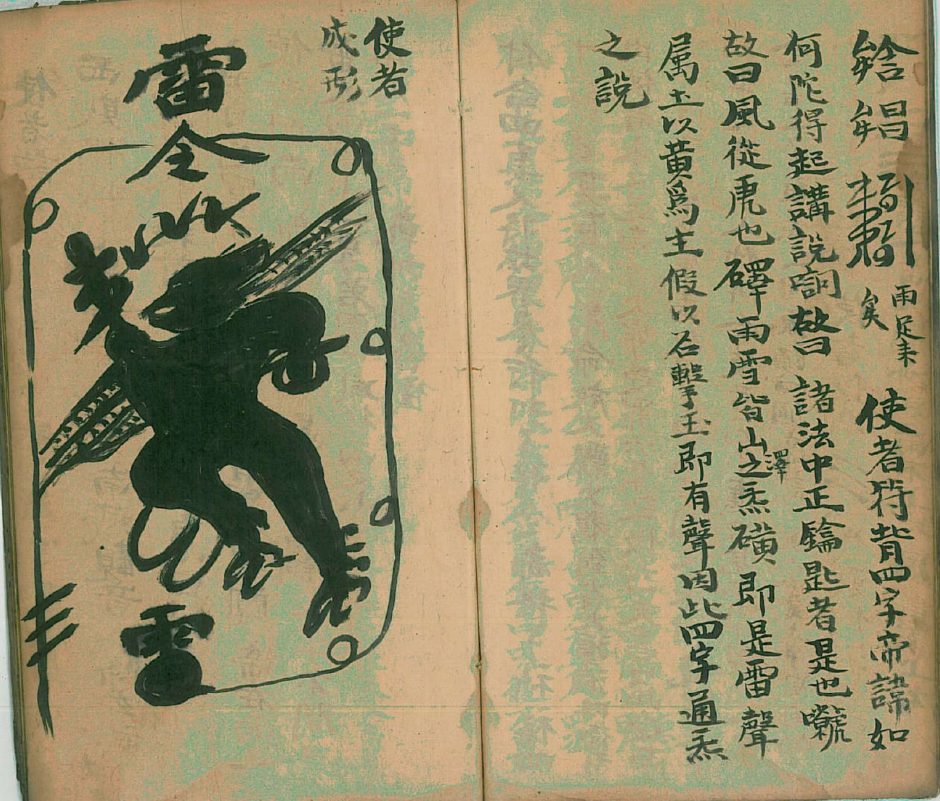 使者符背四字帝諱如
何陀得起講說 故曰 諸法中正鑰匙者是也
故曰風從虎也 礋雨雪皆山澤之炁磺即是雷聲
属土以黃爲主假以石擊玉即有聲因此四字通炁
之說
使者
成形
雷
令